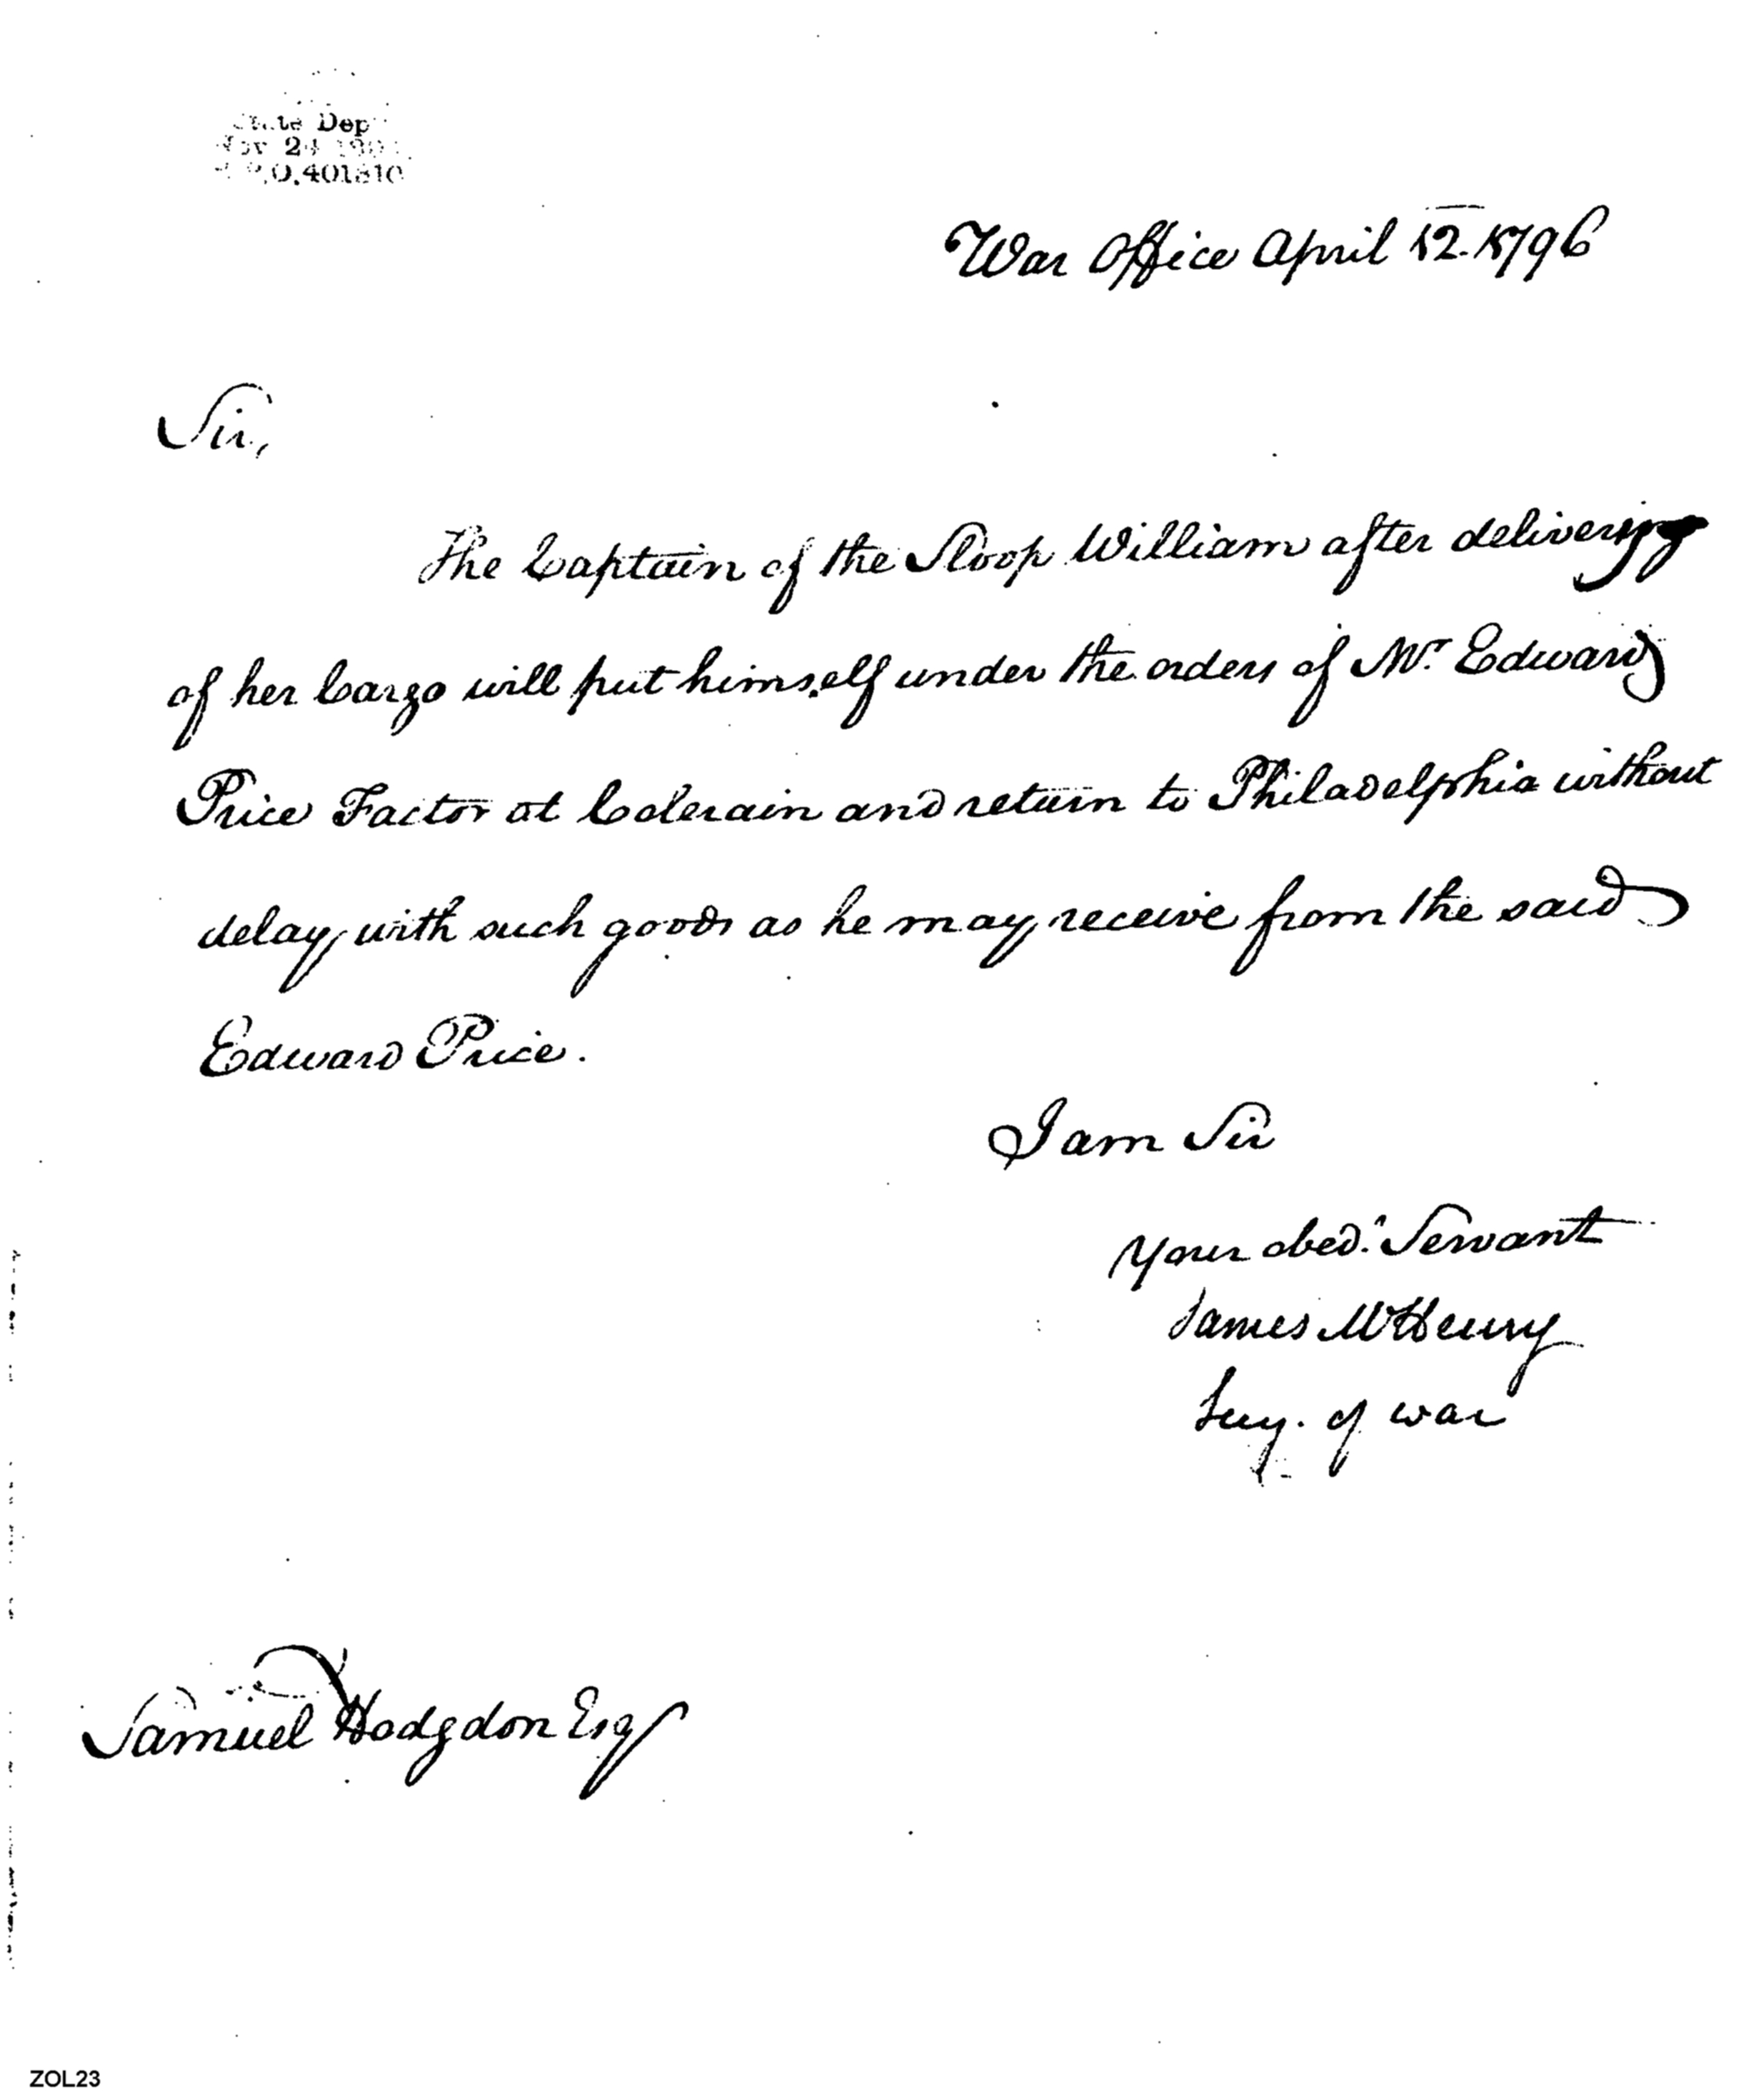 State Dep
Nov 24 190
R.O.401810
War Office April 12. 1796
Sir,
The Captain of the Sloop William after delivery
of her Cargo will put himself under the orders of Mr. Edward
Price Factor at Colerain and return to Philadelphia without
delay, with such goods as he may receive from the said
Edward Price.
I am Sir
Your obedt. Servant
James McHenry
Secy. of war
Samuel Hodgdon Esq
ZOL23